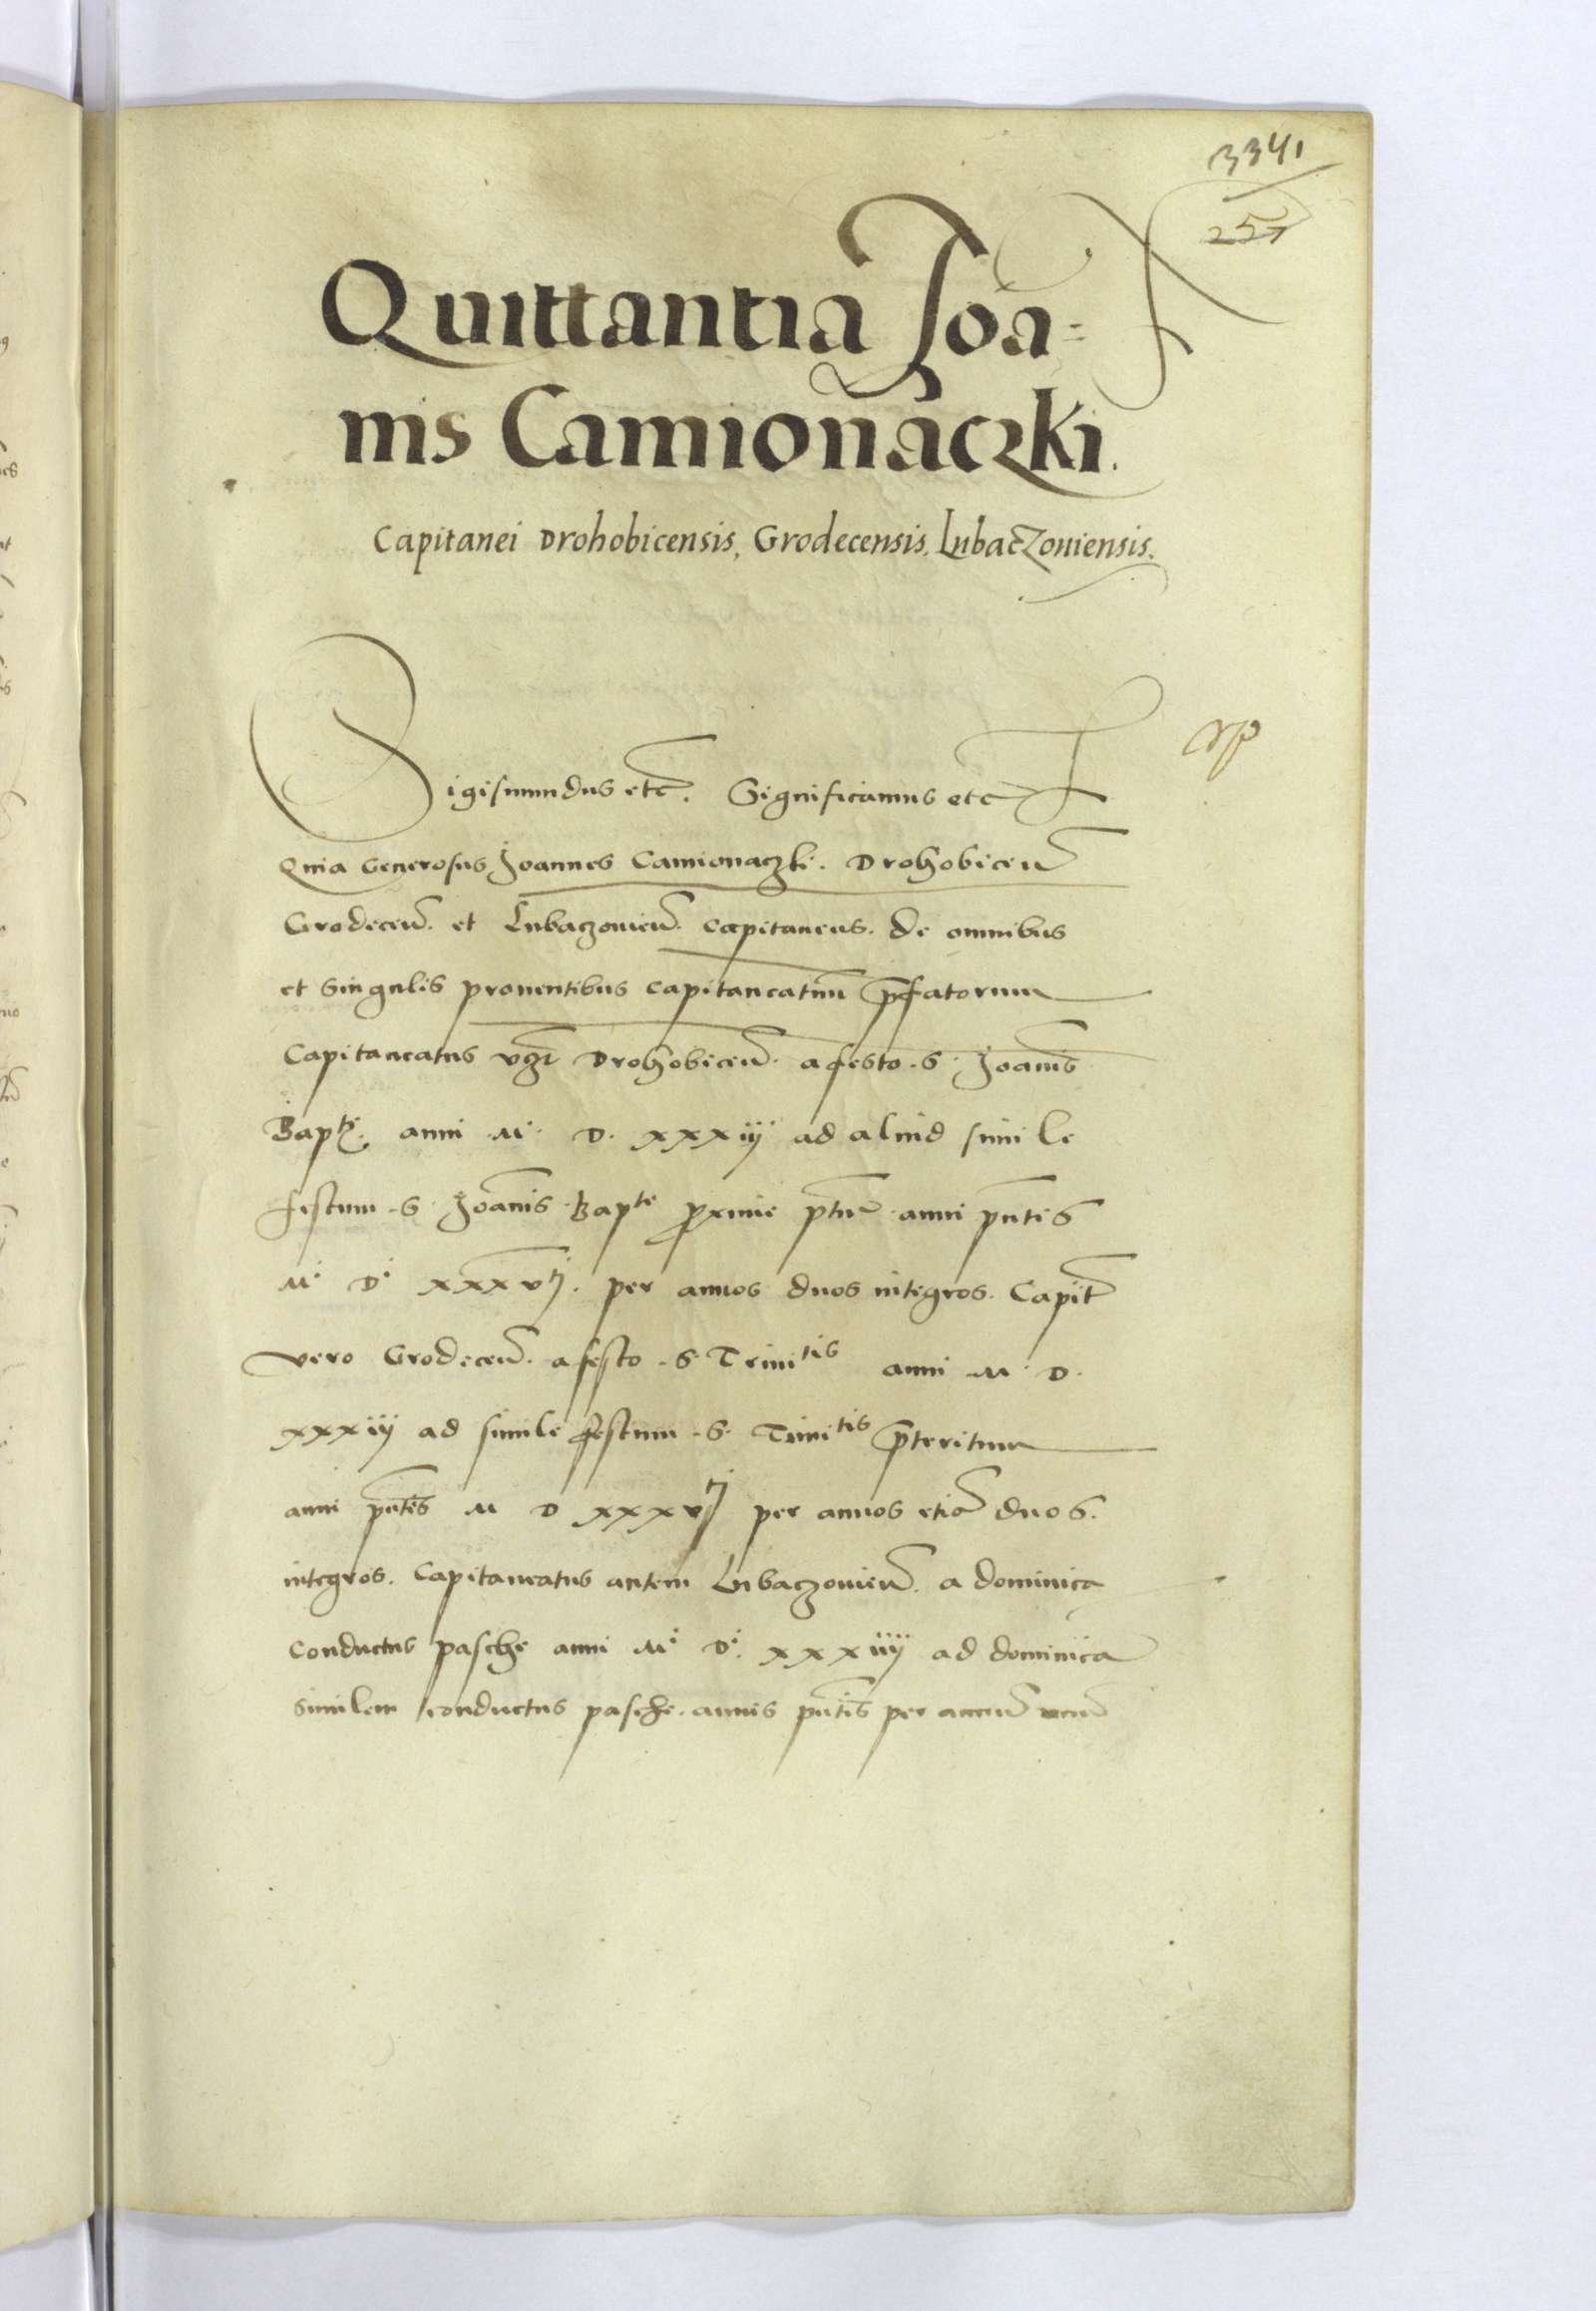 3341
257
Quittantia Joā=
nis Camionaczki.
Capitanei Drohobicensis, Grodecensis, Lubaczouiensis.
Sigismundus etc. Significamus etc
Quia Generosus Joannes Camionaczki. Drohobiceñ
Grodeceñ. et Lubaczouieñ. capitaneus. de omnibus
et singulis prouentibus capitaneatuū p̄fatorum
Capitaneatus vz̄ Drohobiceñ. a festo. S. Joānis
Bapte. anni M. D. xxxiiij ad aliud simile
festum. S. Joānis Bapte proxime p̄tur. anni p̄ntis
M. D. xxxvj. per annos duos integros. Capit̄
vero Grodeceñ. a festo. S. Trinitis anni M. D.
xxxiiij ad simile festum. S. Trinitis p̄teritum
anni p̄ntis M D xxxvj per annos etiā duos.
integros. Capitaneatus autem Lubaczouieñ. a dominica
conductus pasche anni M. D. xxxiiij ad dominicā
similem conductus pasche. annis p̄ntis per annū